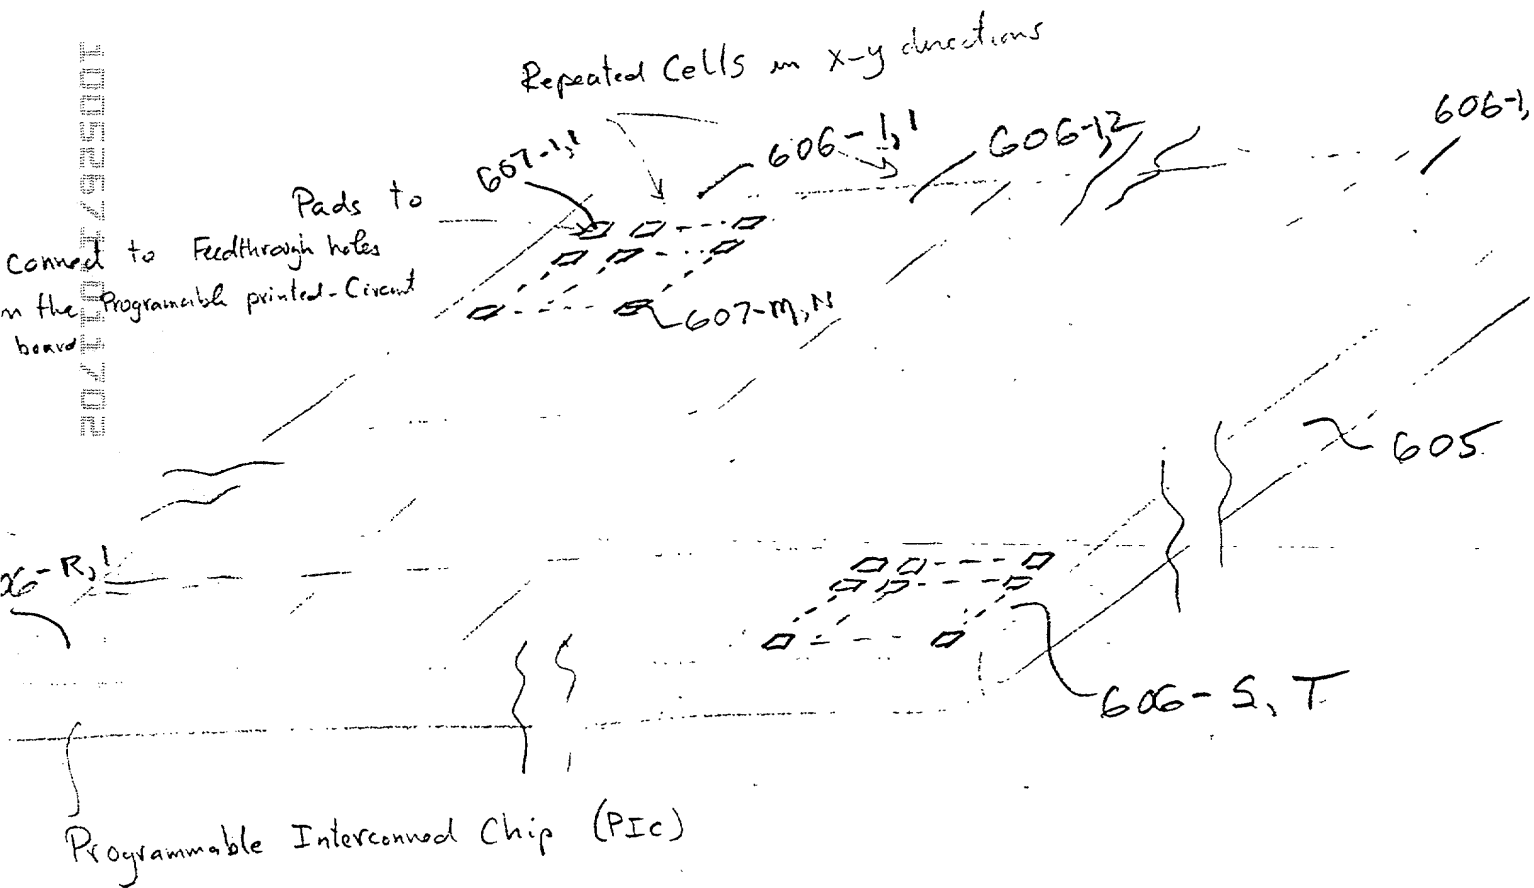 Repeated Cells in x-y directions
606-1,
607-1,1
606-1,1
606-1,2
Pads to
Connect to Feedthrough holes
n the Programable printed-Circuit
board
607-M,N
605
06-R,1
606-S,T
Programmable Interconnect Chip (PIC)